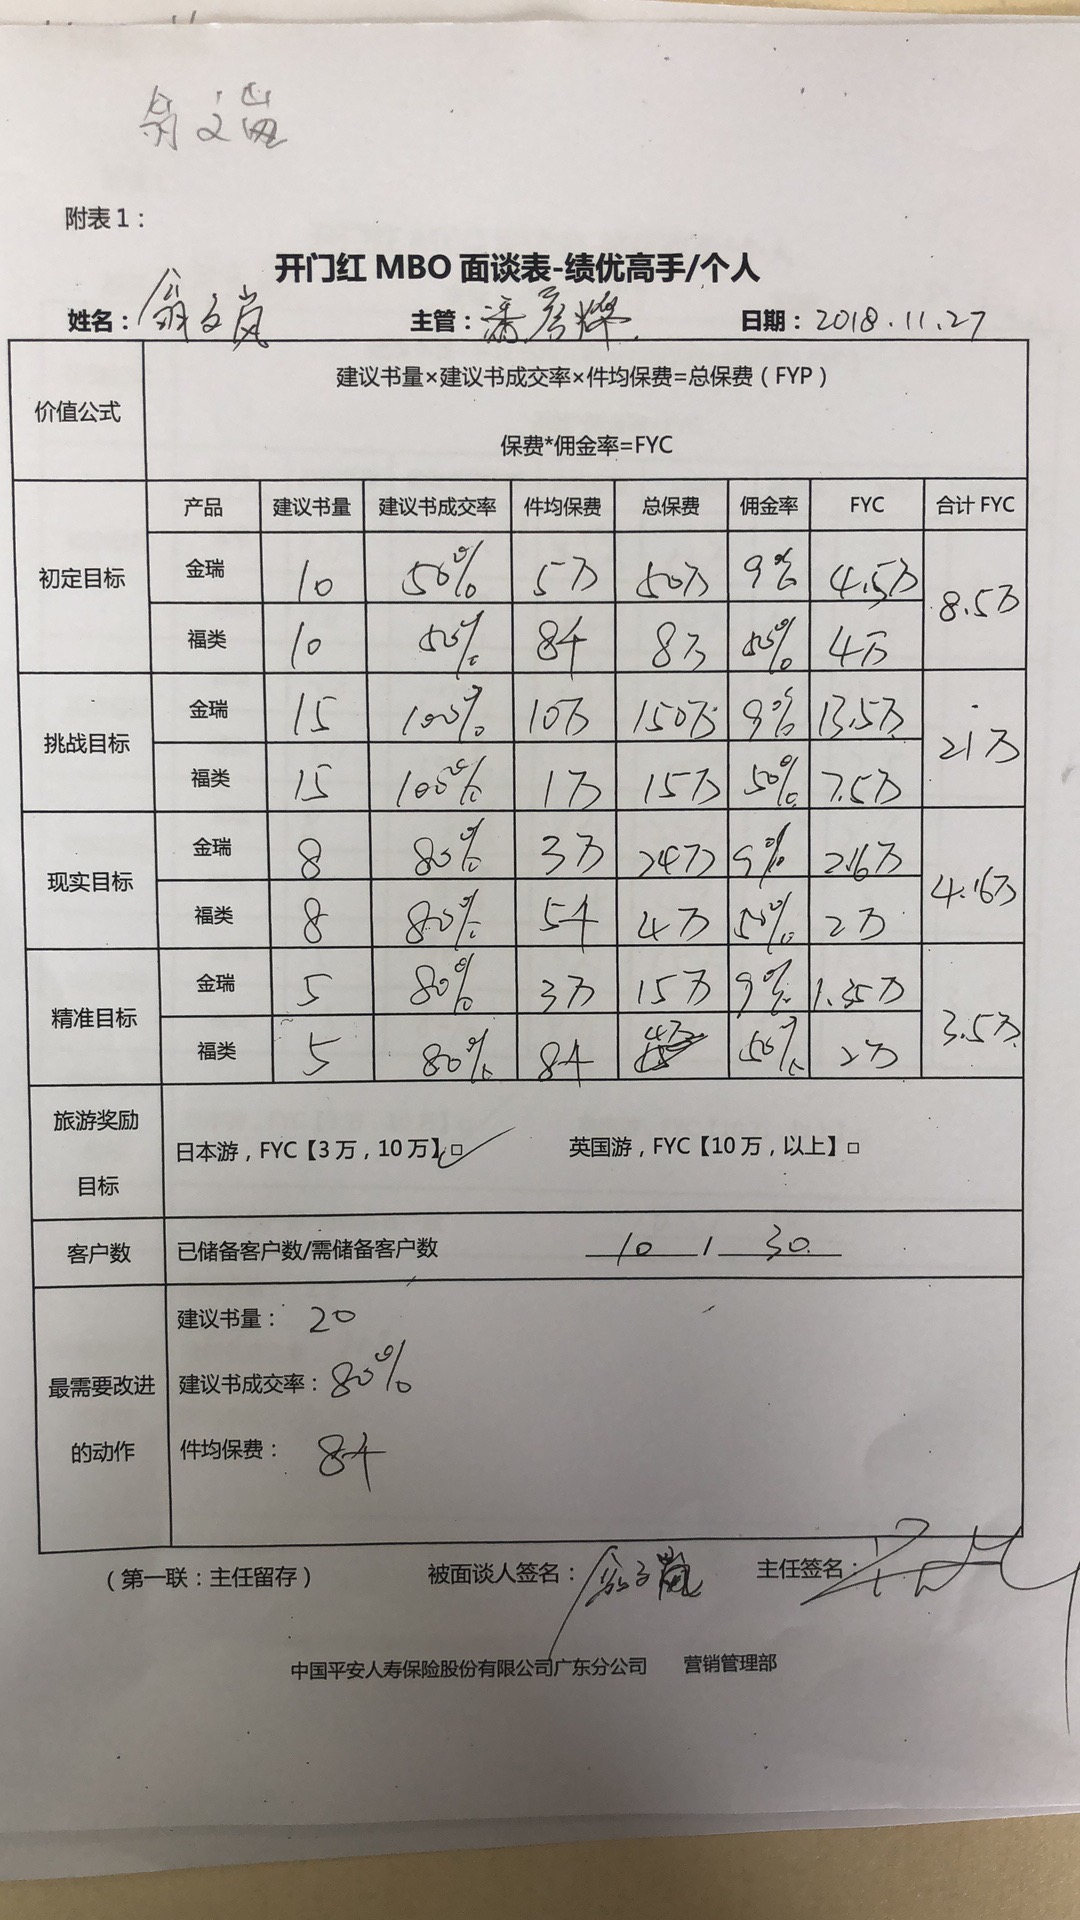 翁文岚
附表1：
开门红 MBO 面谈表-绩优高手/个人
姓名：翁文岚 主管：潘彦燦 日期：2018.11.27
价值公式 建议书量×建议书成交率×件均保费=总保费（FYP）
保费*佣金率=FYC
产品 建议书量 建议书成交率 件均保费 总保费 佣金率 FYC 合计 FYC
初定目标 金瑞 10 50% 5万 50万 9% 4.5万 8.5万
福类 10 50% 8千 8万 50% 4万
挑战目标 金瑞 15 100% 10万 150万 9% 13.5万 21万
福类 15 100% 1万 15万 50% 7.5万
现实目标 金瑞 8 80% 3万 24万 9% 2.16万 4.16万
福类 8 80% 5千 4万 50% 2万
精准目标 金瑞 5 80% 3万 15万 9% 1.35万 3.5万
福类 5 80% 8千 4万 50% 2万
旅游奖励目标 日本游，FYC【3万，10万】□ ✓ 英国游，FYC【10万，以上】□
客户数 已储备客户数/需储备客户数 10 / 30
最需要改进的动作 建议书量： 20
建议书成交率：80%
件均保费： 8千
（第一联：主任留存） 被面谈人签名：翁文岚 主任签名：
中国平安人寿保险股份有限公司广东分公司 营销管理部